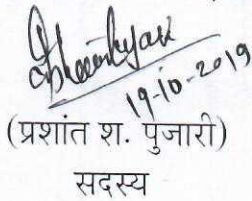 19-10-2019
(प्रशांत श. पुजारी)
सदस्य